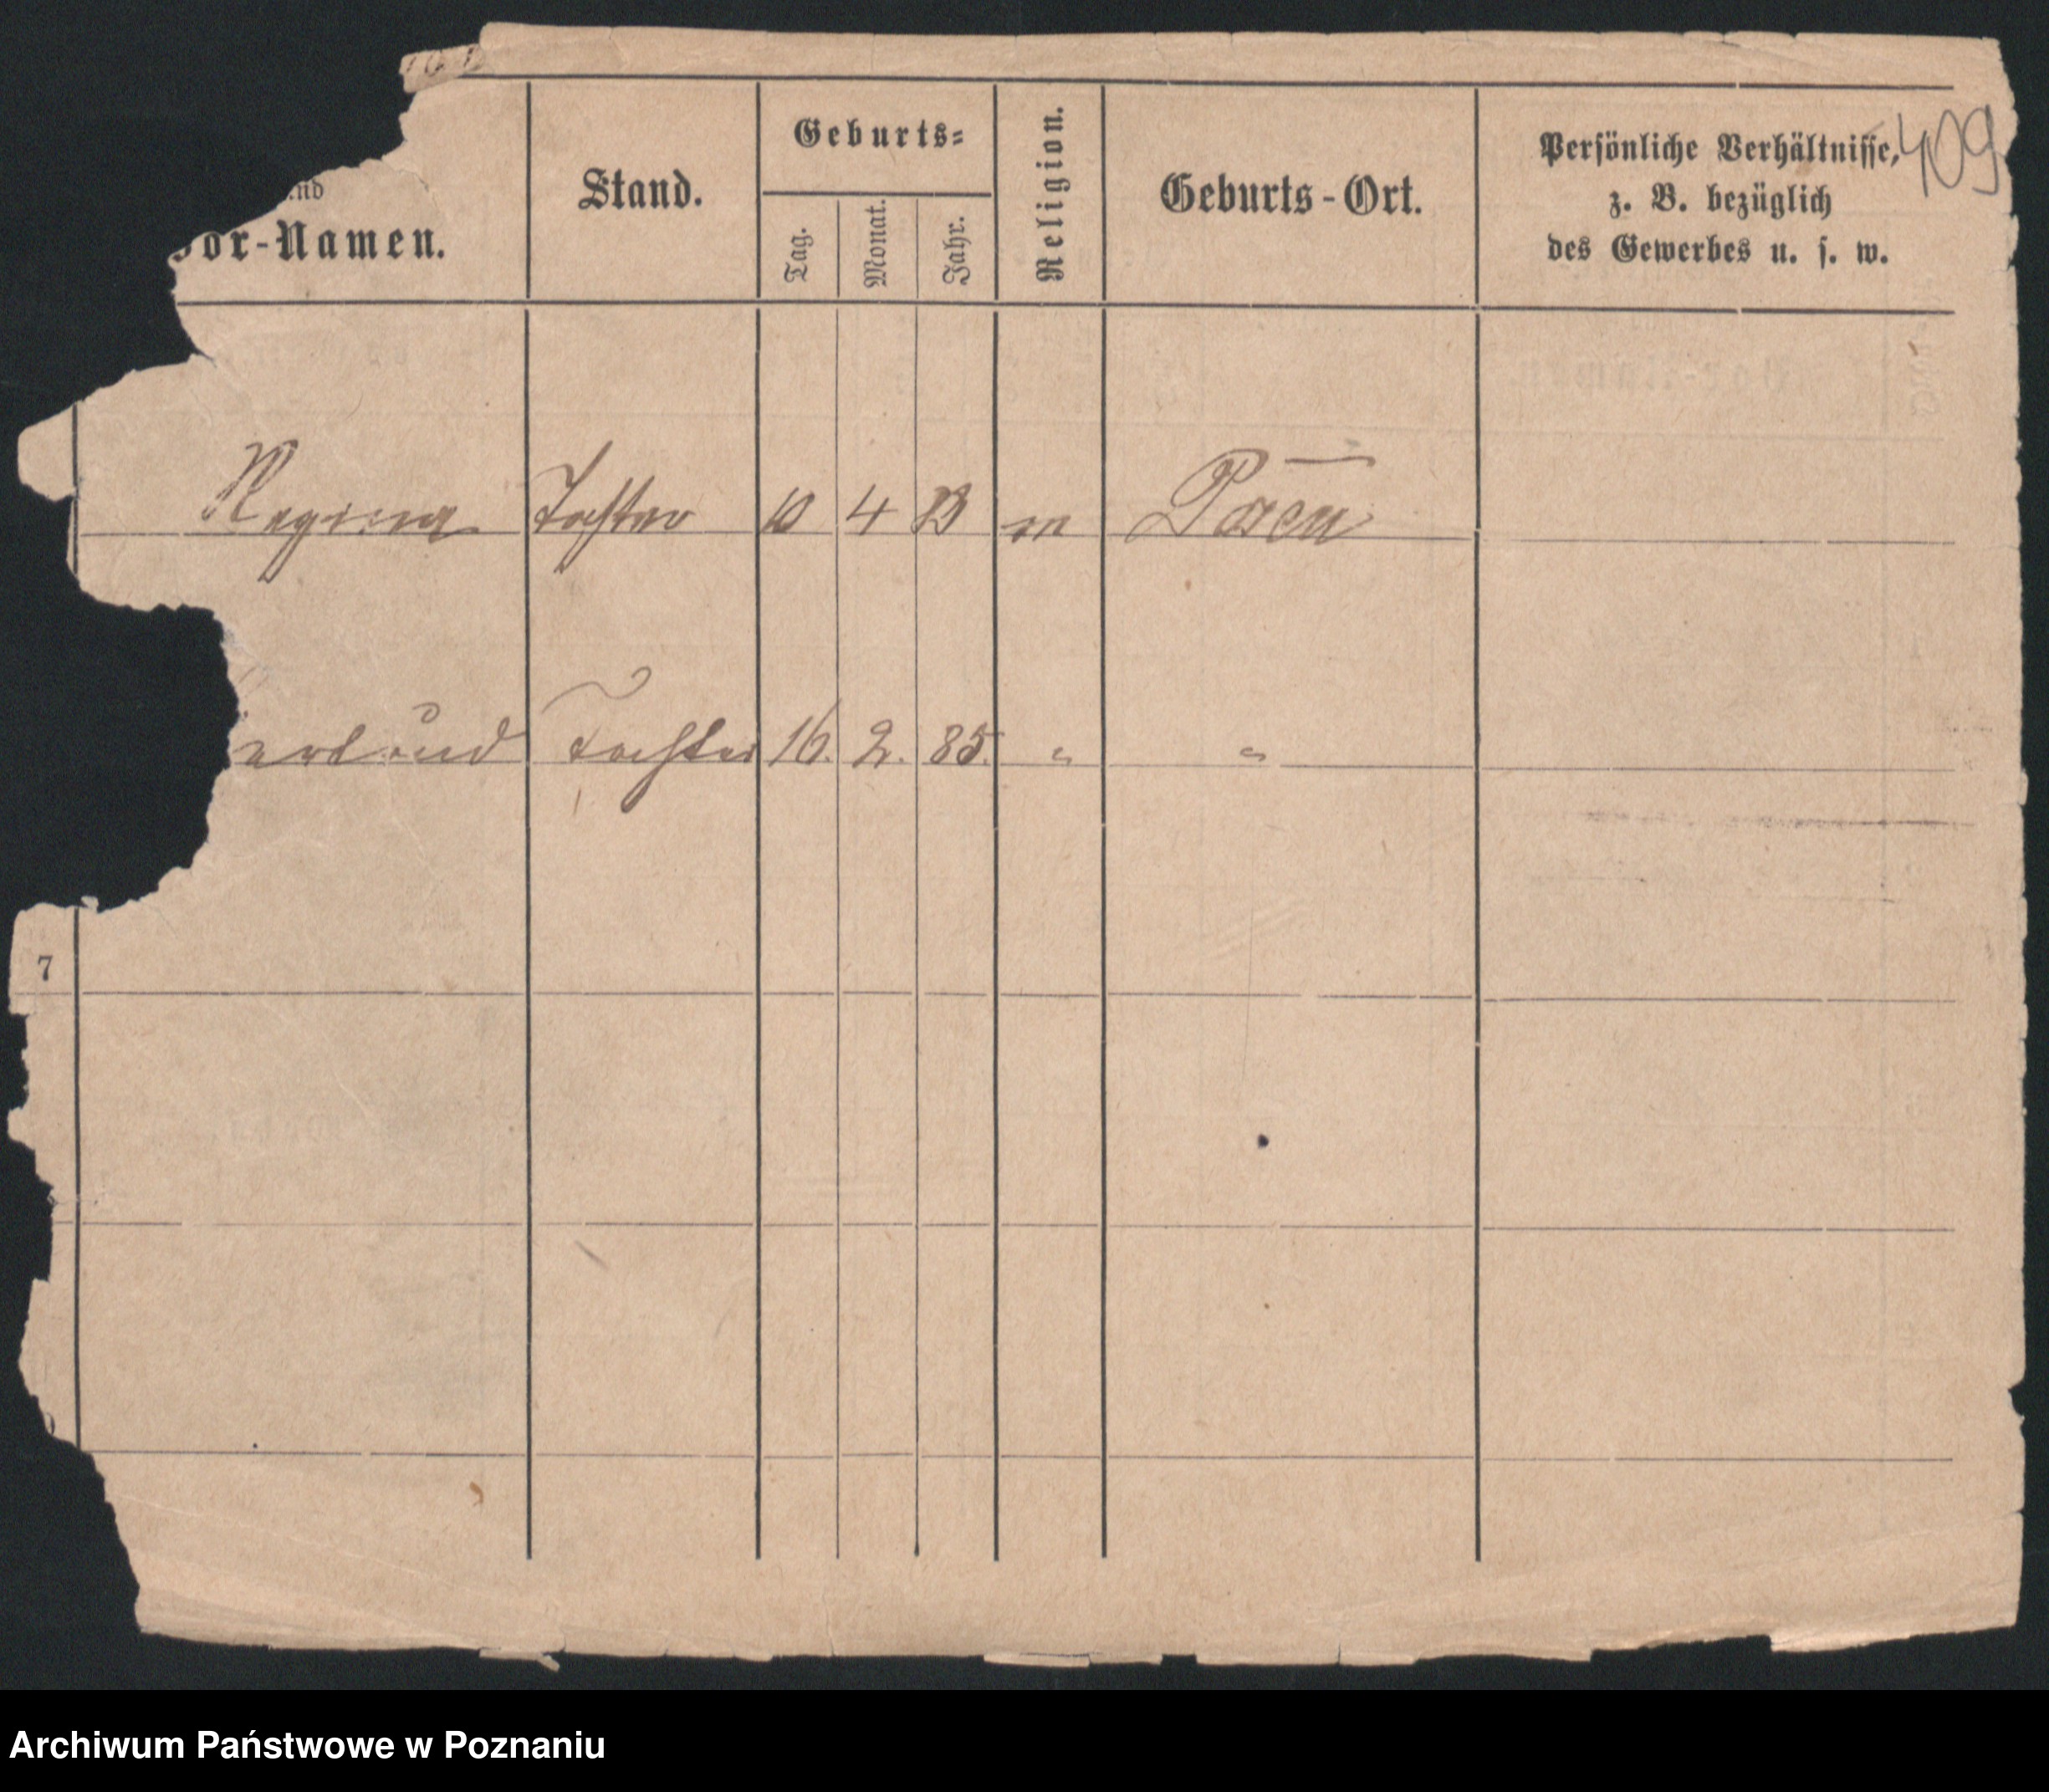 409
Vor-Namen.
Stand.
Geburts-
Tag.
Monat.
Jahr.
Religion.
Geburts-Ort.
Persönliche Verhältnisse,
z. B. bezüglich
des Gewerbes u. s. w.
Regina Tochter 10 4 m Posen
Tochter 16. 2. 85. " "
7
Archiwum Państwowe w Poznaniu